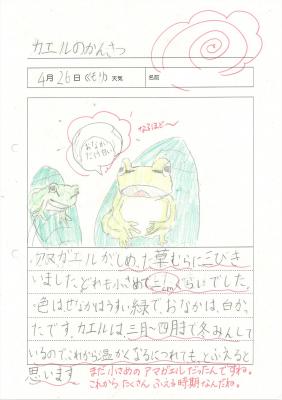 カエルのかんさつ
4月26日 くもり 天気 名前
なるほど〜
おなか
だけ白い
アマガエルがしめった草むらに三びき
いました。どれも小さめで三cmぐらいでした。
色は、せなかはうすい緑で、おなかは、白かっ
たです。カエルは、三月〜四月まで冬みんして
いるので、これから温かくなるにつれて、もっとふえると
思います
まだ小さめのアマガエルだったんですね。
これからたくさんふえる時期なんだね。